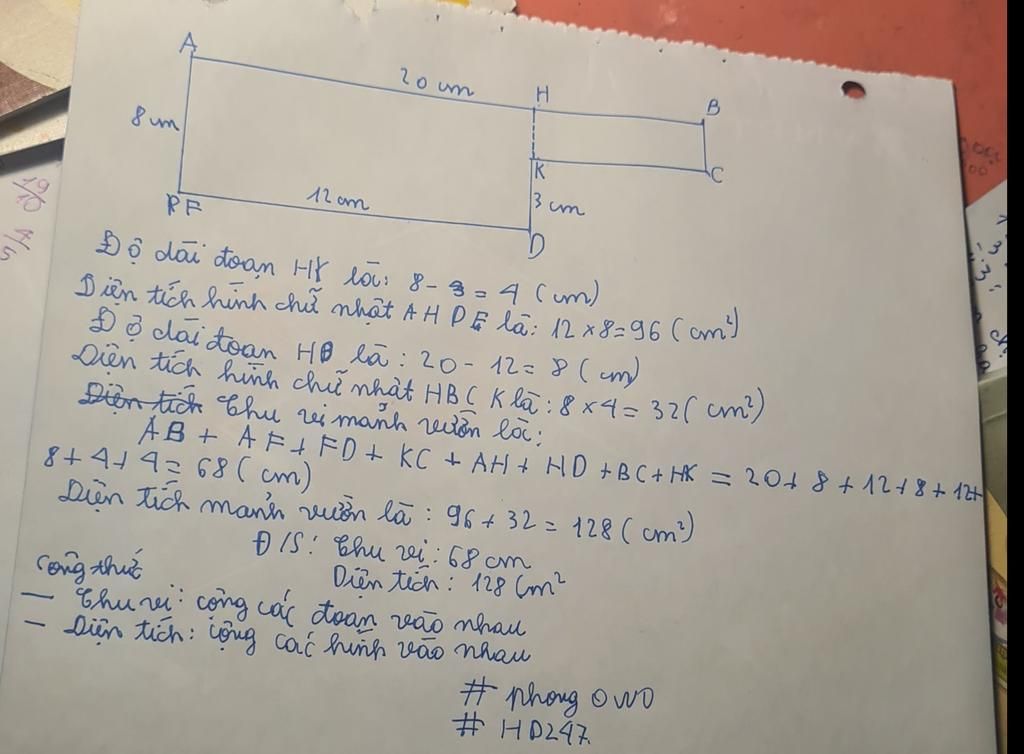 A
20 cm
H
B
8 cm
K
C
12 cm
3 cm
F
D
Độ dài đoạn HK là: 8 - 3 = 4 (cm)
Diện tích hình chữ nhật AHDF là: 12 x 8 = 96 (cm²)
Độ dài đoạn HB là: 20 - 12 = 8 (cm)
Diện tích hình chữ nhật HBCK là: 8 x 4 = 32 (cm²)
Diện tích Chu vi mảnh vườn là:
AB + AF + FD + KC + AH + HD + BC + HK = 20 + 8 + 12 + 8 + 12 +
8 + 4 + 4 = 68 (cm)
Diện tích mảnh vườn là: 96 + 32 = 128 (cm²)
Đ/S: Chu vi: 68 cm
Diện tích: 128 cm²
Công thức
— Chu vi: cộng các đoạn vào nhau
- Diện tích: cộng các hình vào nhau
# phong OWO
# HD247
19/10